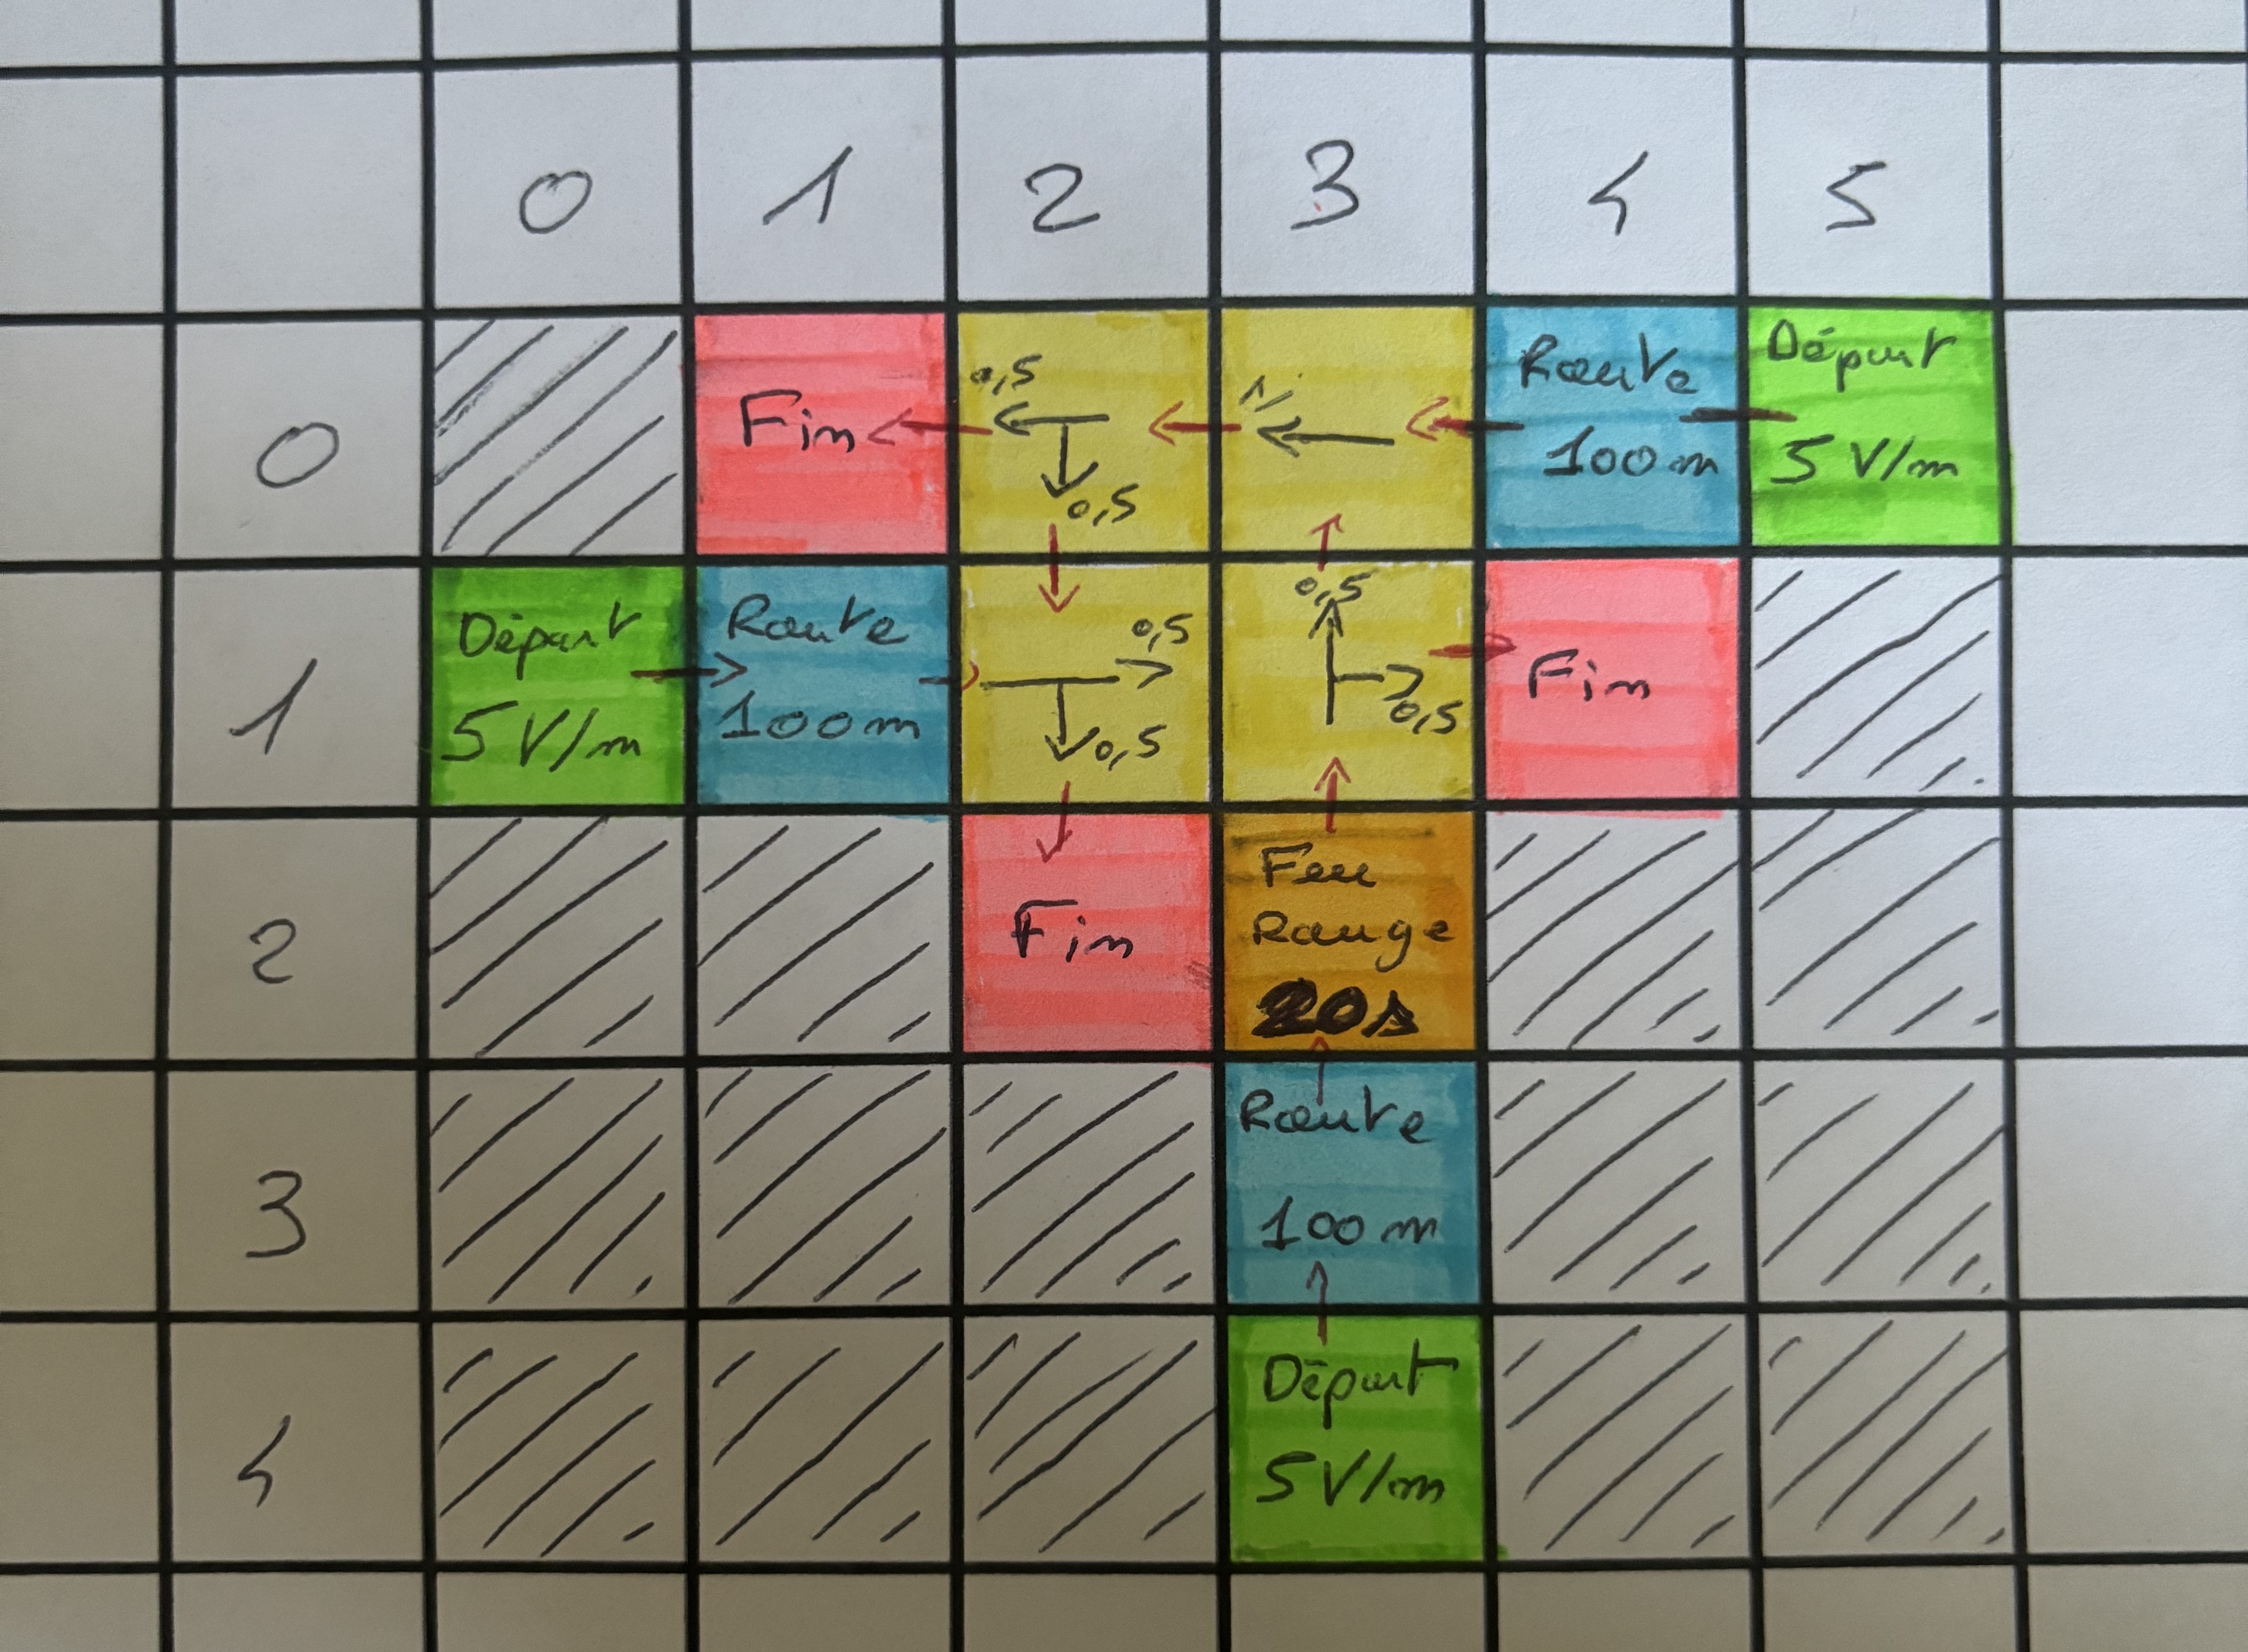 0 1 2 3 4 5
0
Fin
0,5
0,5
1
Route
100m
Départ
5 V/m
1
Départ
5 V/m
Route
100m
0,5
0,5
0,5
0,5
Fin
2
Fin
Feu
Rouge
20s
3
Route
100m
4
Départ
5 V/m